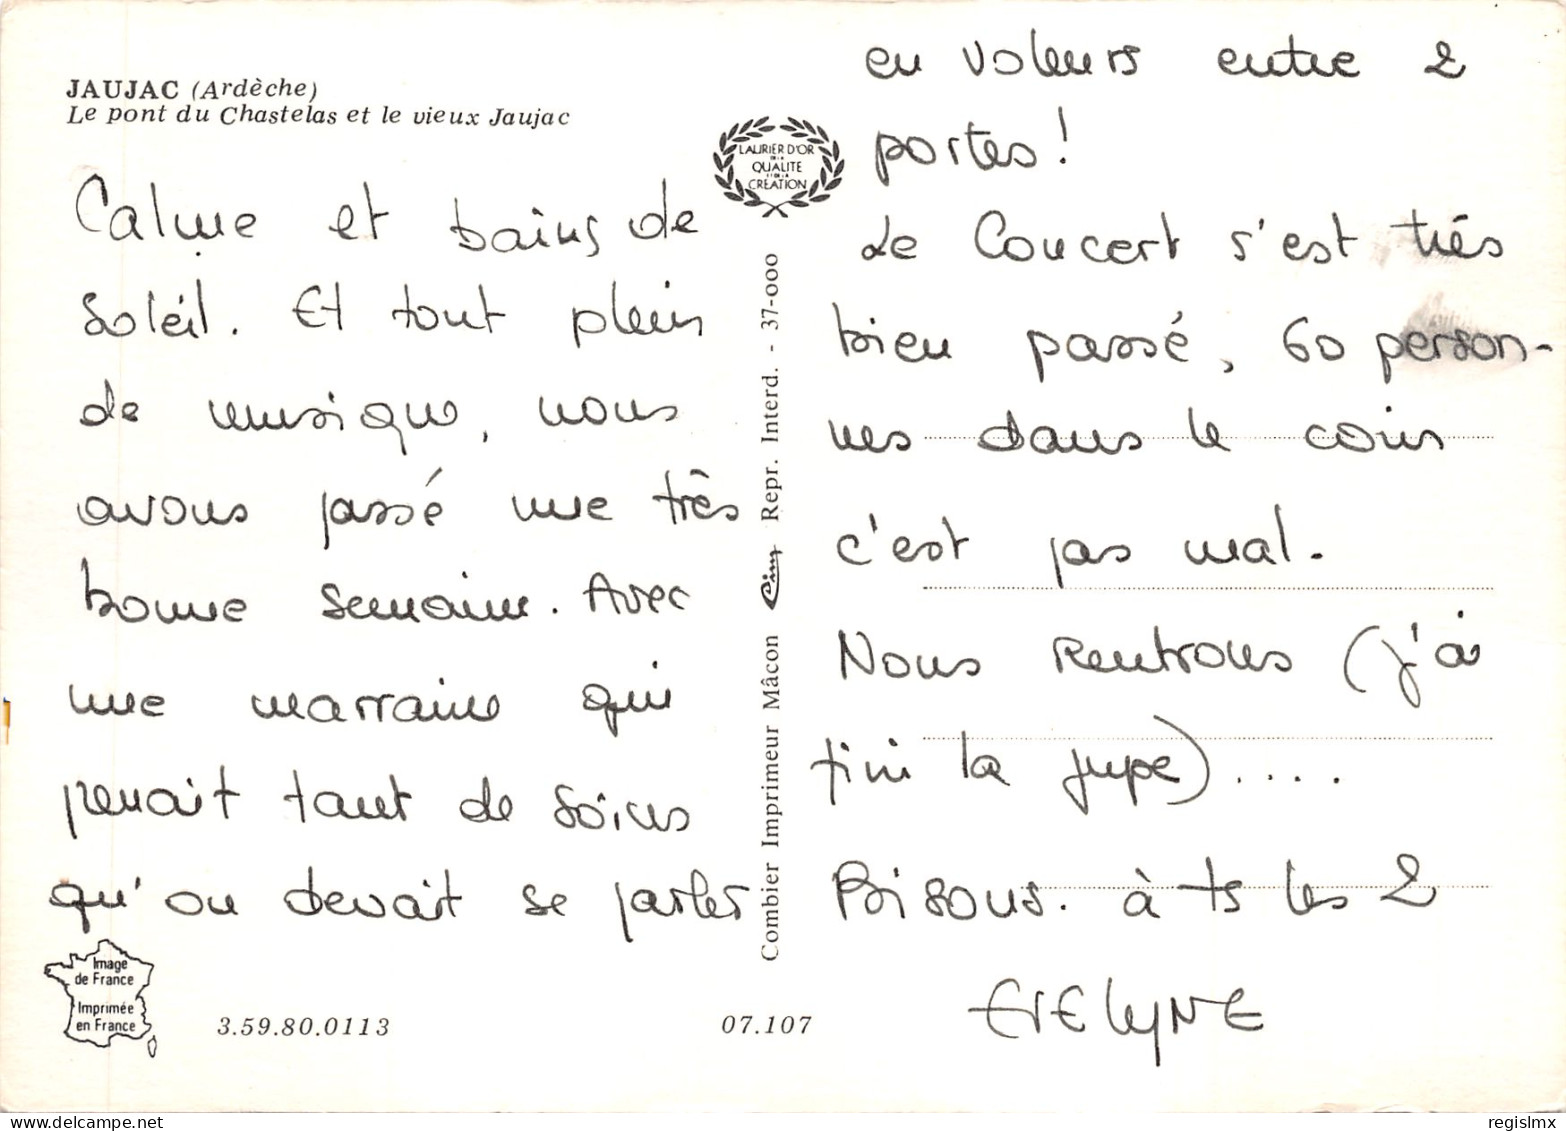 JAUJAC (Ardèche)
Le pont du Chastelas et le vieux Jaujac
Calme et bains de
soleil. Et tout plein
de musique, nous
avons passé une très
bonne semaine. Avec
une marraine qui
prenait tant de soins
qu'on devait se parler
en voleurs entre 2
portes!
Le Concert s'est très
bien passé, 60 person-
nes dans le coin
c'est pas mal.
Nous rentrons (j'ai
fini la jupe)....
Bisous. à ts les 2
EVElyNE
LAURIER D'OR
DE LA
QUALITE
ET DE LA
CREATION
Combier Imprimeur Mâcon Cim Repr. Interd. - 37-000
Image
de France
Imprimée
en France
3.59.80.0113
07.107
regislmx